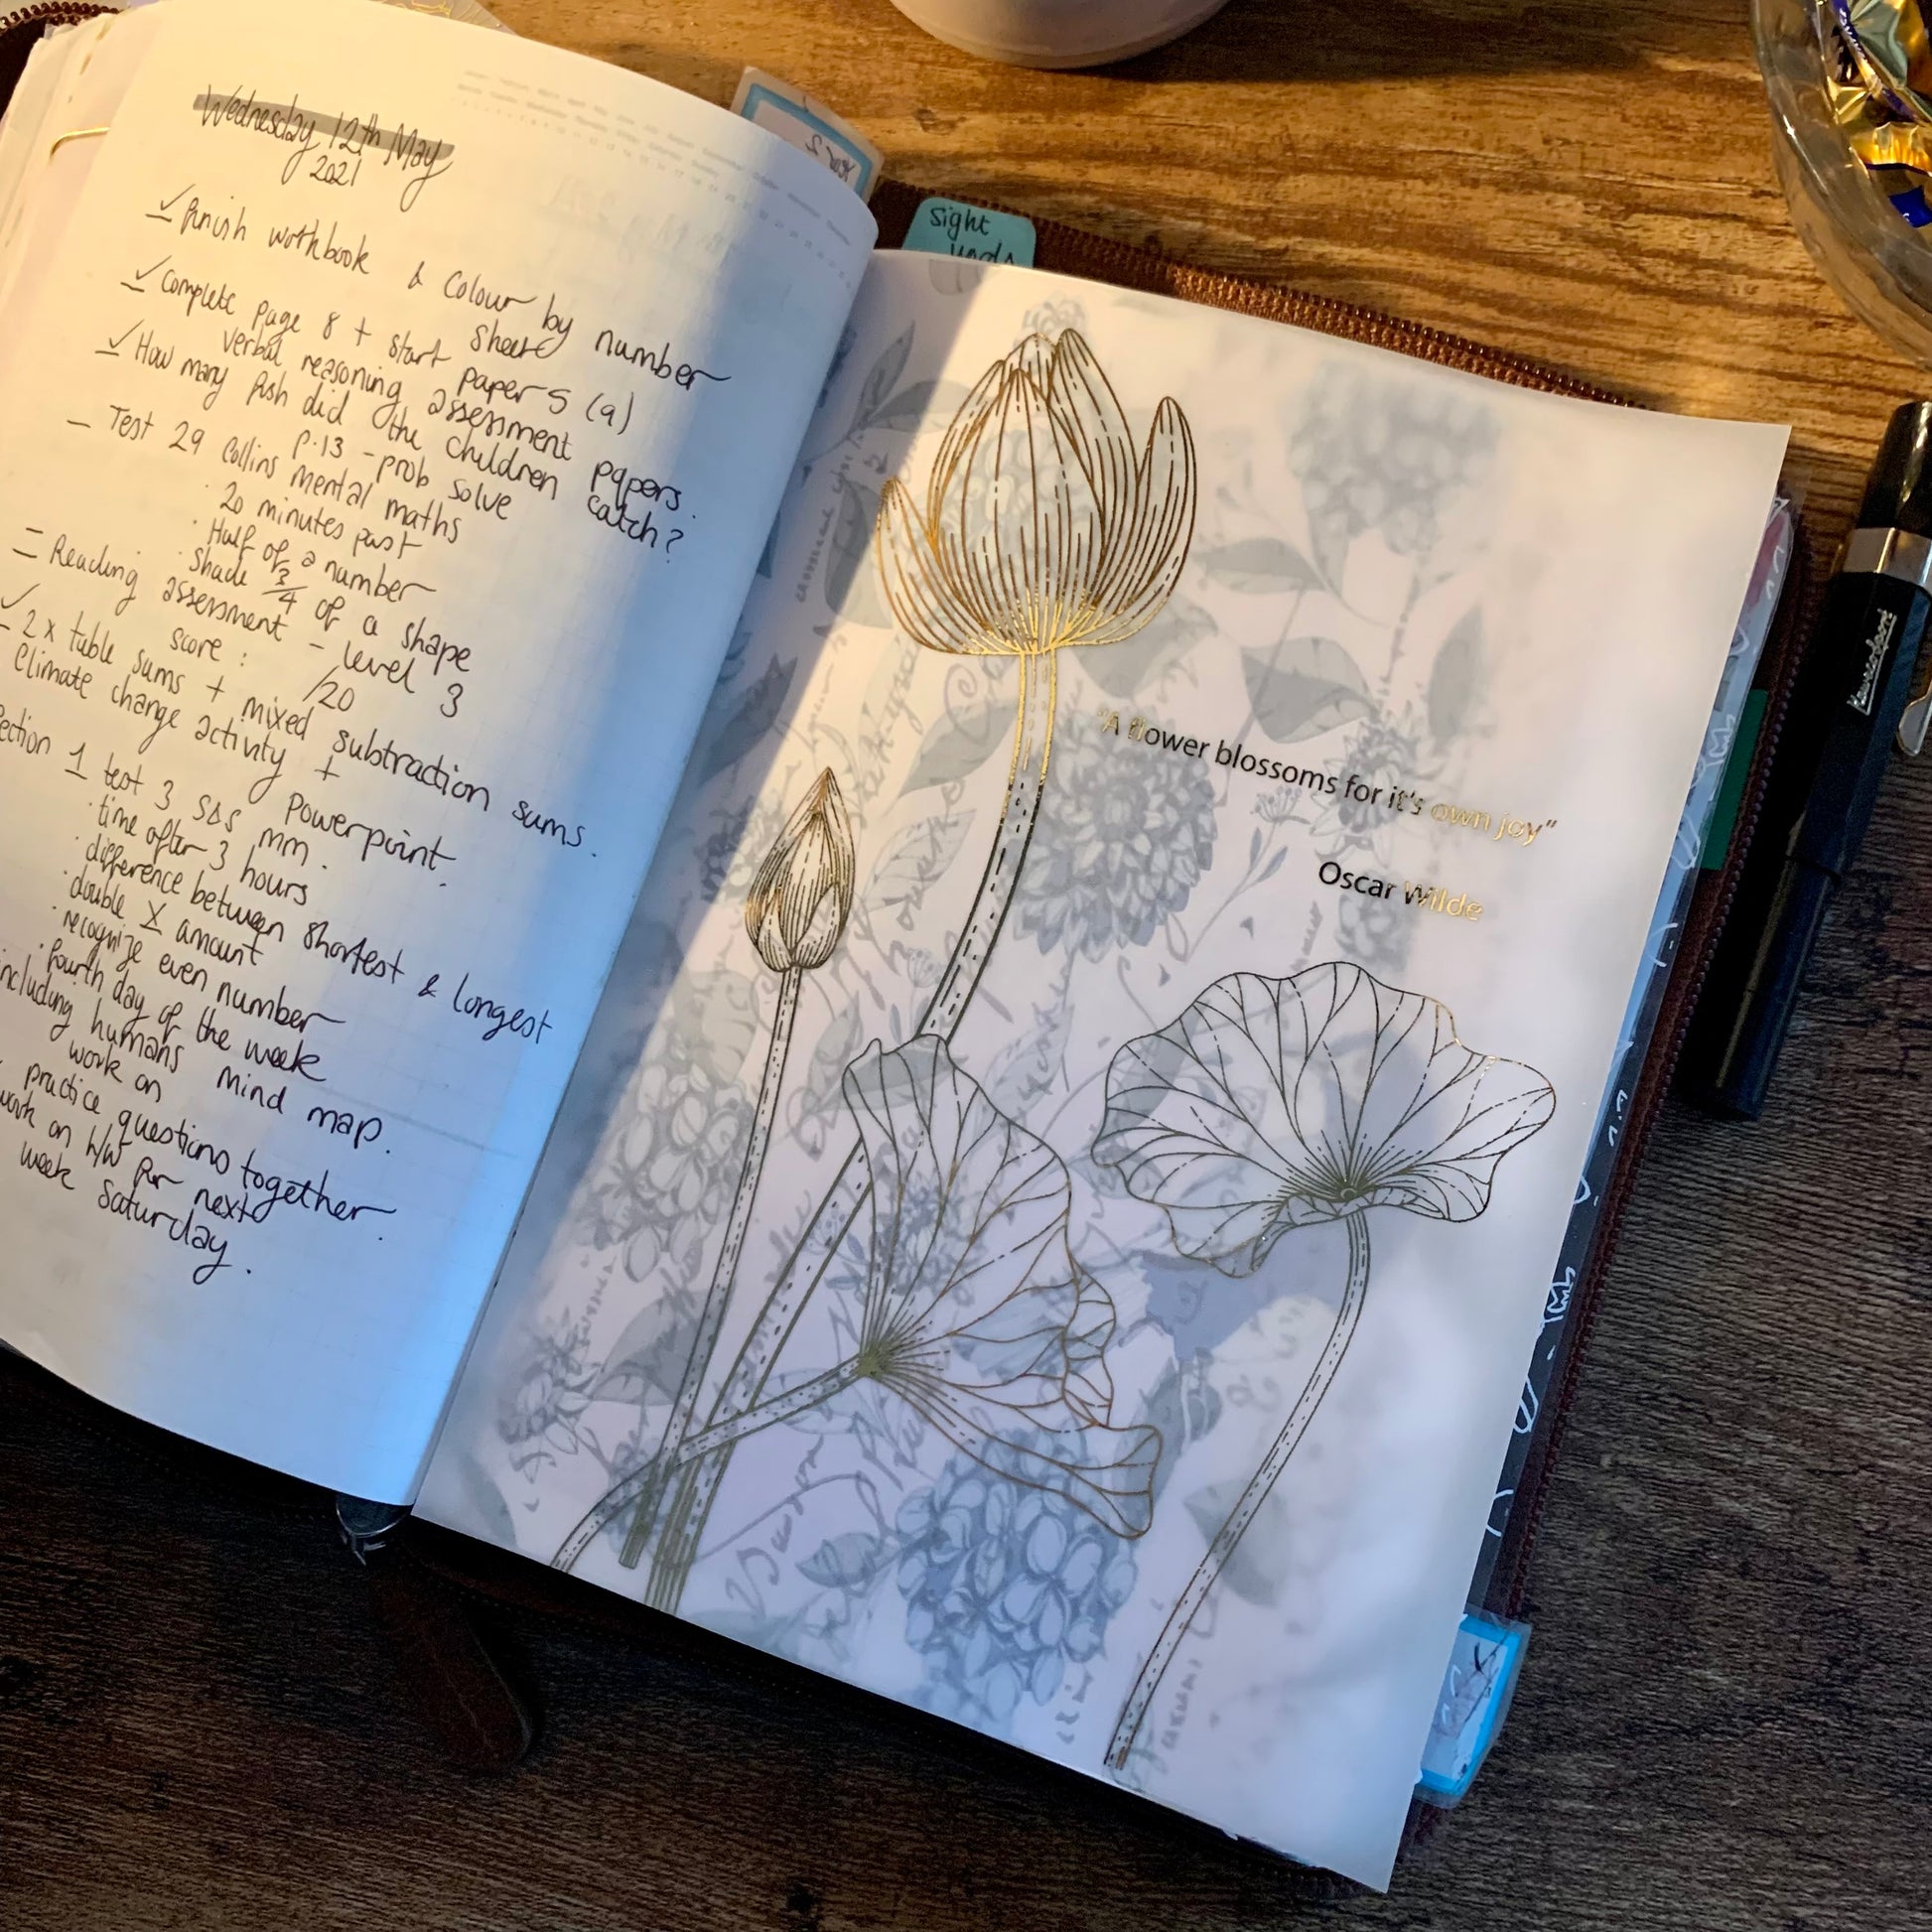 Wednesday 12th May
2021
✓ - finish workbook & Colour by number
sheet
✓ - Complete page 8 + start paper 5 (a)
verbal reasoning assessment papers.
✓ - How many fish did the children catch?
p.13 - prob solve
- Test 29 Collins mental maths
· 20 minutes past
· Half of a number
· Shade 3/4 of a shape
= Reading assessment - level 3
score : /20
✓ - 2x table sums + mixed subtraction sums.
Climate change activity + Powerpoint.
ection 1 test 3 SΔS mm.
· time after 3 hours
· difference between shortest & longest
· double X amount
· recognize even number
· fourth day of the week
including humans mind map.
work on
practice questions together.
work on h/w for next
week Saturday.
Sight
"A flower blossoms for it's own joy"
Oscar Wilde
Kaweco